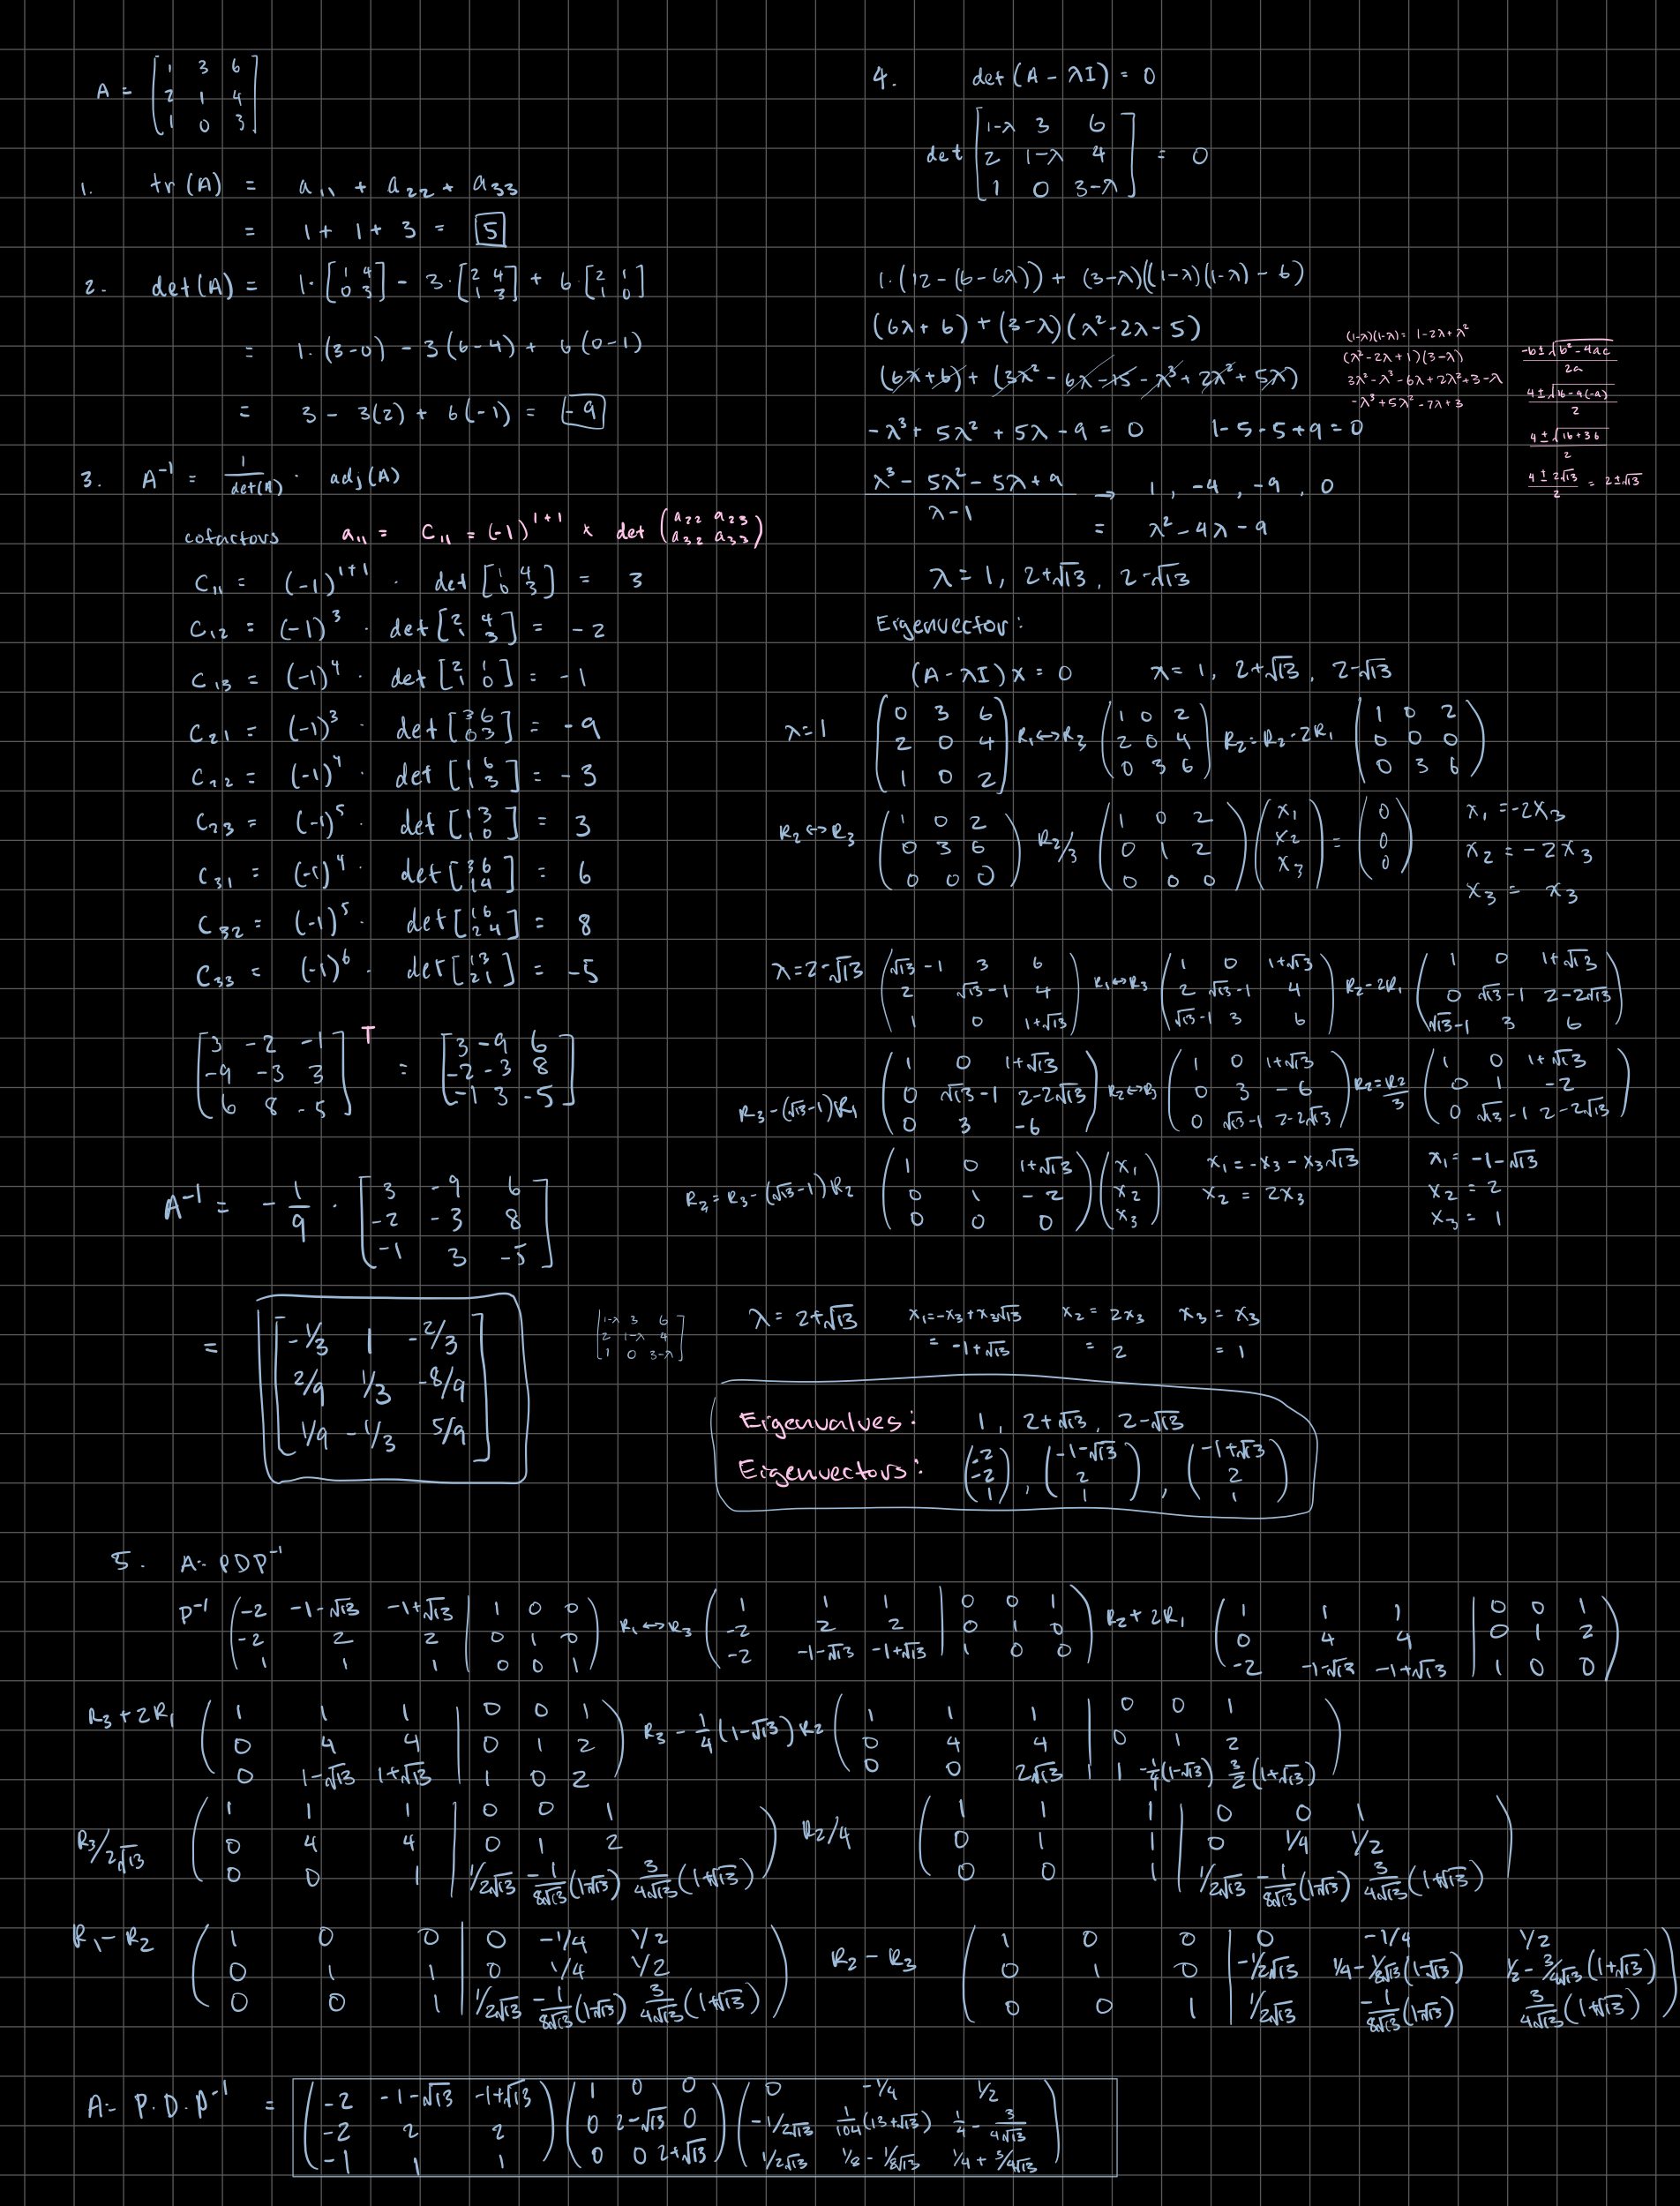 A = [1 3 6
2 1 4
1 0 3]
1. tr(A) = a₁₁ + a₂₂ + a₃₃
= 1 + 1 + 3 = 5
2. det(A) = 1·[1 4; 0 3] - 3·[2 4; 1 3] + 6·[2 1; 1 0]
= 1·(3-0) - 3(6-4) + 6(0-1)
= 3 - 3(2) + 6(-1) = -9
3. A⁻¹ = 1/det(A) · adj(A)
cofactors a₁₁ = C₁₁ = (-1)¹⁺¹ × det(a₂₂ a₂₃; a₃₂ a₃₃)
C₁₁ = (-1)¹⁺¹ · det[1 4; 0 3] = 3
C₁₂ = (-1)³ · det[2 4; 1 3] = -2
C₁₃ = (-1)⁴ · det[2 1; 1 0] = -1
C₂₁ = (-1)³ · det[3 6; 0 3] = -9
C₂₂ = (-1)⁴ · det[1 6; 1 3] = -3
C₂₃ = (-1)⁵ · det[1 3; 1 0] = 3
C₃₁ = (-1)⁴ · det[3 6; 1 4] = 6
C₃₂ = (-1)⁵ · det[1 6; 2 4] = 8
C₃₃ = (-1)⁶ · det[1 3; 2 1] = -5
[3 -2 -1; -9 -3 3; 6 8 -5]ᵀ = [3 -9 6; -2 -3 8; -1 3 -5]
A⁻¹ = -1/9 · [3 -9 6; -2 -3 8; -1 3 -5]
= [-1/3 1 -2/3; 2/9 1/3 -8/9; 1/9 -1/3 5/9]
4. det(A - λI) = 0
det[1-λ 3 6; 2 1-λ 4; 1 0 3-λ] = 0
1·(12-(6-6λ)) + (3-λ)((1-λ)(1-λ) - 6)
(6λ+6) + (3-λ)(λ²-2λ-5)
(6λ+6) + (3λ² - 6λ - 15 - λ³ + 2λ² + 5λ)
-λ³ + 5λ² + 5λ - 9 = 0 1-5-5+9 = 0
(1-λ)(1-λ) = 1-2λ+λ²
(λ²-2λ+1)(3-λ)
3λ²-λ³-6λ+2λ²+3-λ
-λ³+5λ²-7λ+3
-b±√b²-4ac / 2a
4±√16-4(-9) / 2
4±√16+36 / 2
4±2√13 / 2 = 2±√13
λ³ - 5λ² - 5λ + 9 / λ-1 → 1, -4, -9, 0
= λ² - 4λ - 9
λ = 1, 2+√13, 2-√13
Eigenvector:
(A - λI)x = 0 λ = 1, 2+√13, 2-√13
λ=1 (0 3 6; 2 0 4; 1 0 2) R₁↔R₃ (1 0 2; 2 0 4; 0 3 6) R₂=R₂-2R₁ (1 0 2; 0 0 0; 0 3 6)
R₂↔R₃ (1 0 2; 0 3 6; 0 0 0) R₂/3 (1 0 2; 0 1 2; 0 0 0)(x₁; x₂; x₃) = (0; 0; 0) x₁ = -2x₃
x₂ = -2x₃
x₃ = x₃
λ=2-√13 (√13-1 3 6; 2 √13-1 4; 1 0 1+√13) R₁↔R₃ (1 0 1+√13; 2 √13-1 4; √13-1 3 6) R₂-2R₁ (1 0 1+√13; 0 √13-1 2-2√13; √13-1 3 6)
R₃-(√13-1)R₁ (1 0 1+√13; 0 √13-1 2-2√13; 0 3 -6) R₂↔R₃ (1 0 1+√13; 0 3 -6; 0 √13-1 2-2√13) R₂=R₂/3 (1 0 1+√13; 0 1 -2; 0 √13-1 2-2√13)
R₃=R₃-(√13-1)R₂ (1 0 1+√13; 0 1 -2; 0 0 0)(x₁; x₂; x₃) x₁=-x₃-x₃√13 x₁ = -1-√13
x₂ = 2x₃ x₂ = 2
x₃ = 1
[1-λ 3 6; 2 1-λ 4; 1 0 3-λ]
λ = 2+√13 x₁=-x₃+x₃√13 x₂ = 2x₃ x₃ = x₃
= -1+√13 = 2 = 1
Eigenvalues: 1, 2+√13, 2-√13
Eigenvectors: (-2; -2; 1), (-1-√13; 2; 1), (-1+√13; 2; 1)
5. A = PDP⁻¹
P⁻¹ (-2 -1-√13 -1+√13 | 1 0 0; -2 2 2 | 0 1 0; 1 1 1 | 0 0 1) R₁↔R₃ (1 1 1 | 0 0 1; -2 2 2 | 0 1 0; -2 -1-√13 -1+√13 | 1 0 0) R₂+2R₁ (1 1 1 | 0 0 1; 0 4 4 | 0 1 2; -2 -1-√13 -1+√13 | 1 0 0)
R₃+2R₁ (1 1 1 | 0 0 1; 0 4 4 | 0 1 2; 0 1-√13 1+√13 | 1 0 2) R₃-1/4(1-√13)R₂ (1 1 1 | 0 0 1; 0 4 4 | 0 1 2; 0 0 2√13 | 1 -1/4(1-√13) 3/2(1+√13))
R₃/2√13 (1 1 1 | 0 0 1; 0 4 4 | 0 1 2; 0 0 1 | 1/2√13 -1/8√13(1-√13) 3/4√13(1+√13)) R₂/4 (1 1 1 | 0 0 1; 0 1 1 | 0 1/4 1/2; 0 0 1 | 1/2√13 -1/8√13(1-√13) 3/4√13(1+√13))
R₁-R₂ (1 0 0 | 0 -1/4 1/2; 0 1 1 | 0 1/4 1/2; 0 0 1 | 1/2√13 -1/8√13(1-√13) 3/4√13(1+√13)) R₂-R₃ (1 0 0 | 0 -1/4 1/2; 0 1 0 | -1/2√13 1/4-1/8√13(1-√13) 1/2-3/4√13(1+√13); 0 0 1 | 1/2√13 -1/8√13(1-√13) 3/4√13(1+√13))
A = P·D·P⁻¹ = (-2 -1-√13 -1+√13; -2 2 2; -1 1 1)(1 0 0; 0 2-√13 0; 0 0 2+√13)(0 -1/4 1/2; -1/2√13 1/104(13+√13) 1/4-3/4√13; 1/2√13 1/8-1/8√13 1/4+3/4√13)